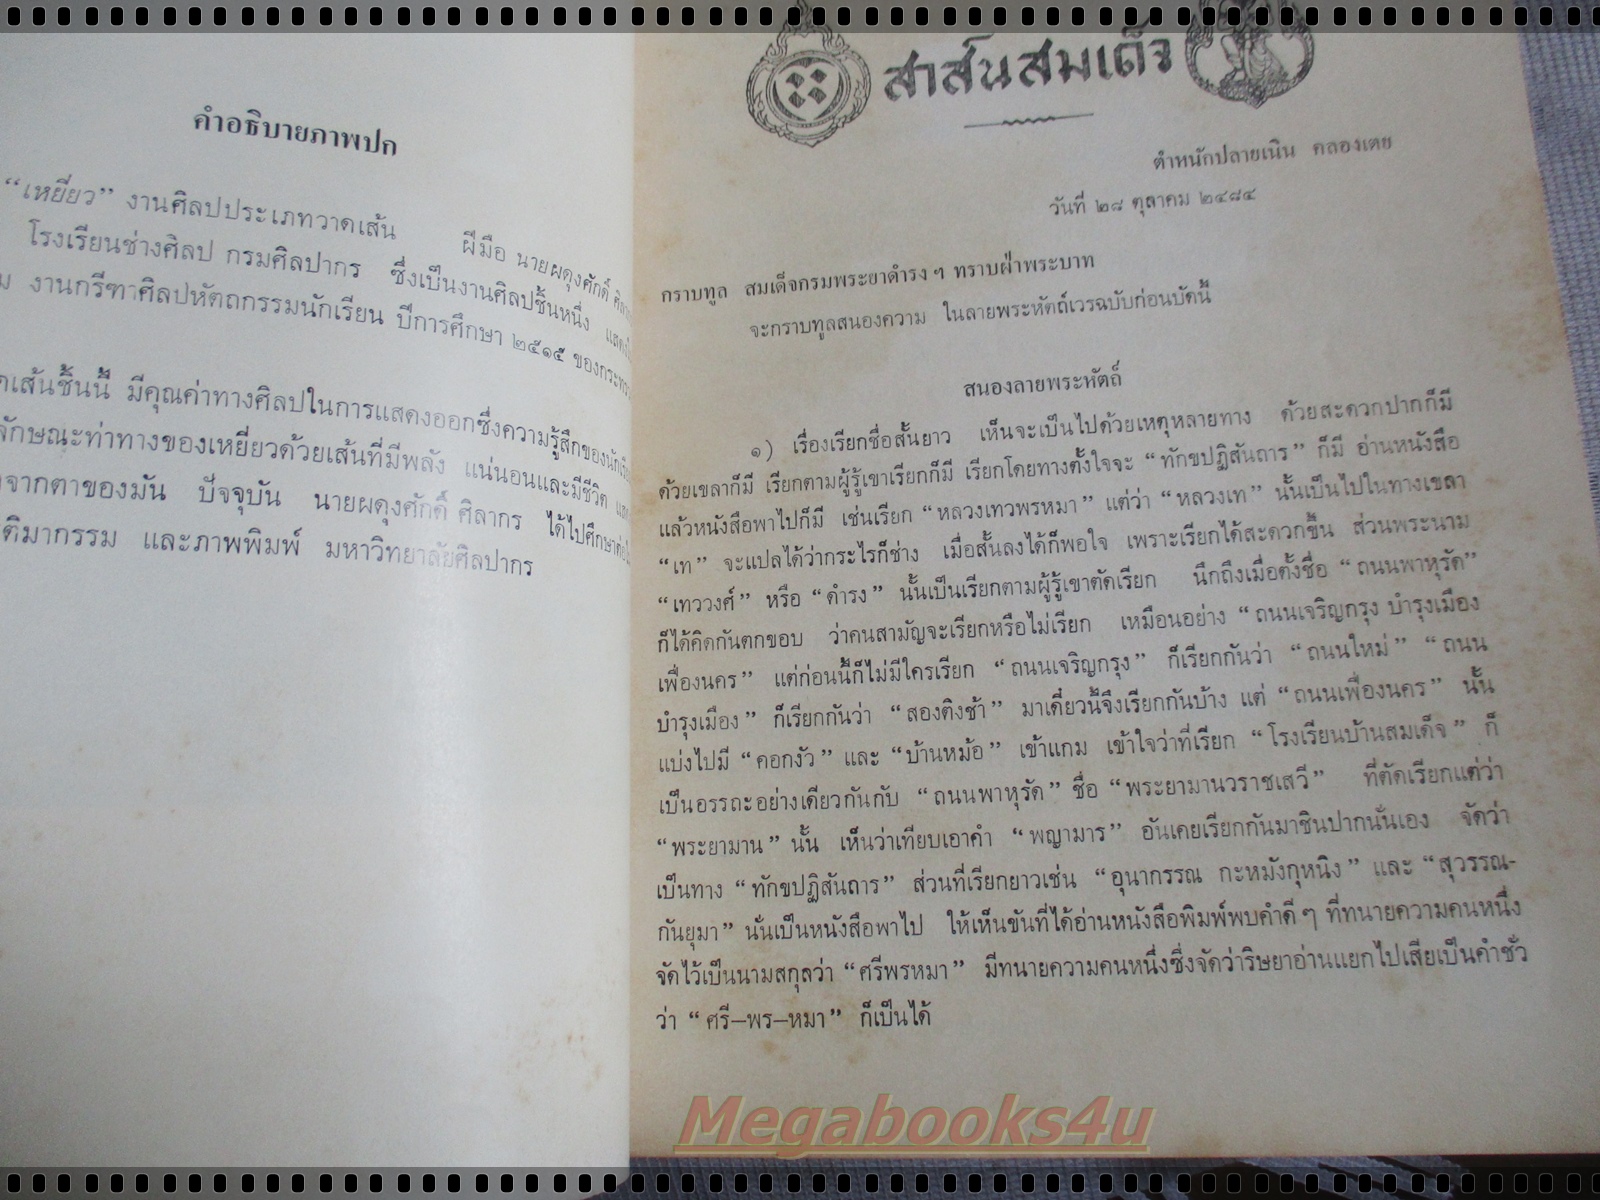 คำอธิบายภาพปก
“เหยี่ยว” งานศิลปประเภทวาดเส้น ฝีมือ นายผดุงศักดิ์
โรงเรียนช่างศิลป กรมศิลปากร ซึ่งเป็นงานศิลปชิ้นหนึ่ง
งานกรีฑาศิลปหัตถกรรมนักเรียน ปีการศึกษา ๒๕๑๕
เส้นชิ้นนี้ มีคุณค่าทางศิลปในการแสดงออกซึ่งความรู้สึกของ
ลักษณะท่าทางของเหยี่ยวด้วยเส้นที่มีพลัง แน่นอนและมีชีวิต
จากตาของมัน ปัจจุบัน นายผดุงศักดิ์ ศิลากร ได้ไปศึกษา
ติมากรรม และภาพพิมพ์ มหาวิทยาลัยศิลปากร
สาส์นสมเด็จ
ตำหนักปลายเนิน คลองเตย
วันที่ ๒๘ ตุลาคม ๒๔๘๔
กราบทูล สมเด็จกรมพระยาดำรงฯ ทราบฝ่าพระบาท
จะกราบทูลสนองความ ในลายพระหัตถ์เวรฉบับก่อนบัดนี้
สนองลายพระหัตถ์
๑) เรื่องเรียกชื่อสั้นยาว เห็นจะเป็นไปด้วยเหตุหลายทาง ด้วยสะดวกปากก็มี
ด้วยเขลาก็มี เรียกตามผู้รู้เขาเรียกก็มี เรียกโดยทางตั้งใจจะ “ทักขปฏิสันถาร” ก็มี อ่านหนังสือ
แล้วหนังสือพาไปก็มี เช่นเรียก “หลวงเทวพรหมา” แต่ว่า “หลวงเท” นั้นเป็นไปในทางเขลา
“เท” จะแปลได้ว่ากระไรก็ช่าง เมื่อสั้นลงได้ก็พอใจ เพราะเรียกได้สะดวกขึ้น ส่วนพระนาม
“เทววงศ์” หรือ “ดำรง” นั้นเป็นเรียกตามผู้รู้เขาตัดเรียก นึกถึงเมื่อตั้งชื่อ “ถนนพาหุรัด”
ก็ได้คิดกันตกขอบ ว่าคนสามัญจะเรียกหรือไม่เรียก เหมือนอย่าง “ถนนเจริญกรุง บำรุงเมือง
เฟื่องนคร” แต่ก่อนนี้ก็ไม่มีใครเรียก “ถนนเจริญกรุง” ก็เรียกกันว่า “ถนนใหม่” “ถนน
บำรุงเมือง” ก็เรียกกันว่า “สองติงช้า” มาเดี๋ยวนี้จึงเรียกกันบ้าง แต่ “ถนนเฟื่องนคร” นั้น
แบ่งไปมี “คอกงัว” และ “บ้านหม้อ” เข้าแกม เข้าใจว่าที่เรียก “โรงเรียนบ้านสมเด็จ” ก็
เป็นอรรถะอย่างเดียวกันกับ “ถนนพาหุรัด” ชื่อ “พระยามานวราชเสวี” ที่ตัดเรียกแต่ว่า
“พระยามาน” นั้น เห็นว่าเทียบเอาคำ “พญามาร” อันเคยเรียกกันมาชินปากนั่นเอง จัดว่า
เป็นทาง “ทักขปฏิสันถาร” ส่วนที่เรียกยาวเช่น “อุนากรรณ กะหมังกุหนิง” และ “สุวรรณ-
กันยุมา” นั่นเป็นหนังสือพาไป ให้เห็นขันที่ได้อ่านหนังสือพิมพ์พบคำดีๆ ที่ทนายความคนหนึ่ง
จัดไว้เป็นนามสกุลว่า “ศรีพรหมา” มีทนายความคนหนึ่งซึ่งจัดว่าริษยาอ่านแยกไปเสียเป็นคำชั่ว
ว่า “ศรี—พร—หมา” ก็เป็นได้
Megabooks4u